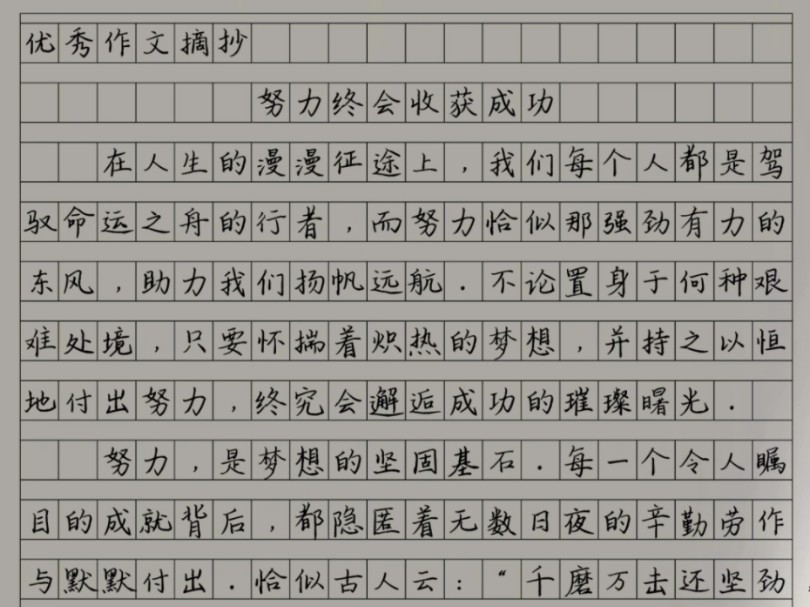 优秀作文摘抄
努力终会收获成功
在人生的漫漫征途上，我们每个人都是驾
驭命运之舟的行者，而努力恰似那强劲有力的
东风，助力我们扬帆远航．不论置身于何种艰
难处境，只要怀揣着炽热的梦想，并持之以恒
地付出努力，终究会邂逅成功的璀璨曙光．
努力，是梦想的坚固基石．每一个令人瞩
目的成就背后，都隐匿着无数日夜的辛勤劳作
与默默付出．恰似古人云：“千磨万击还坚劲